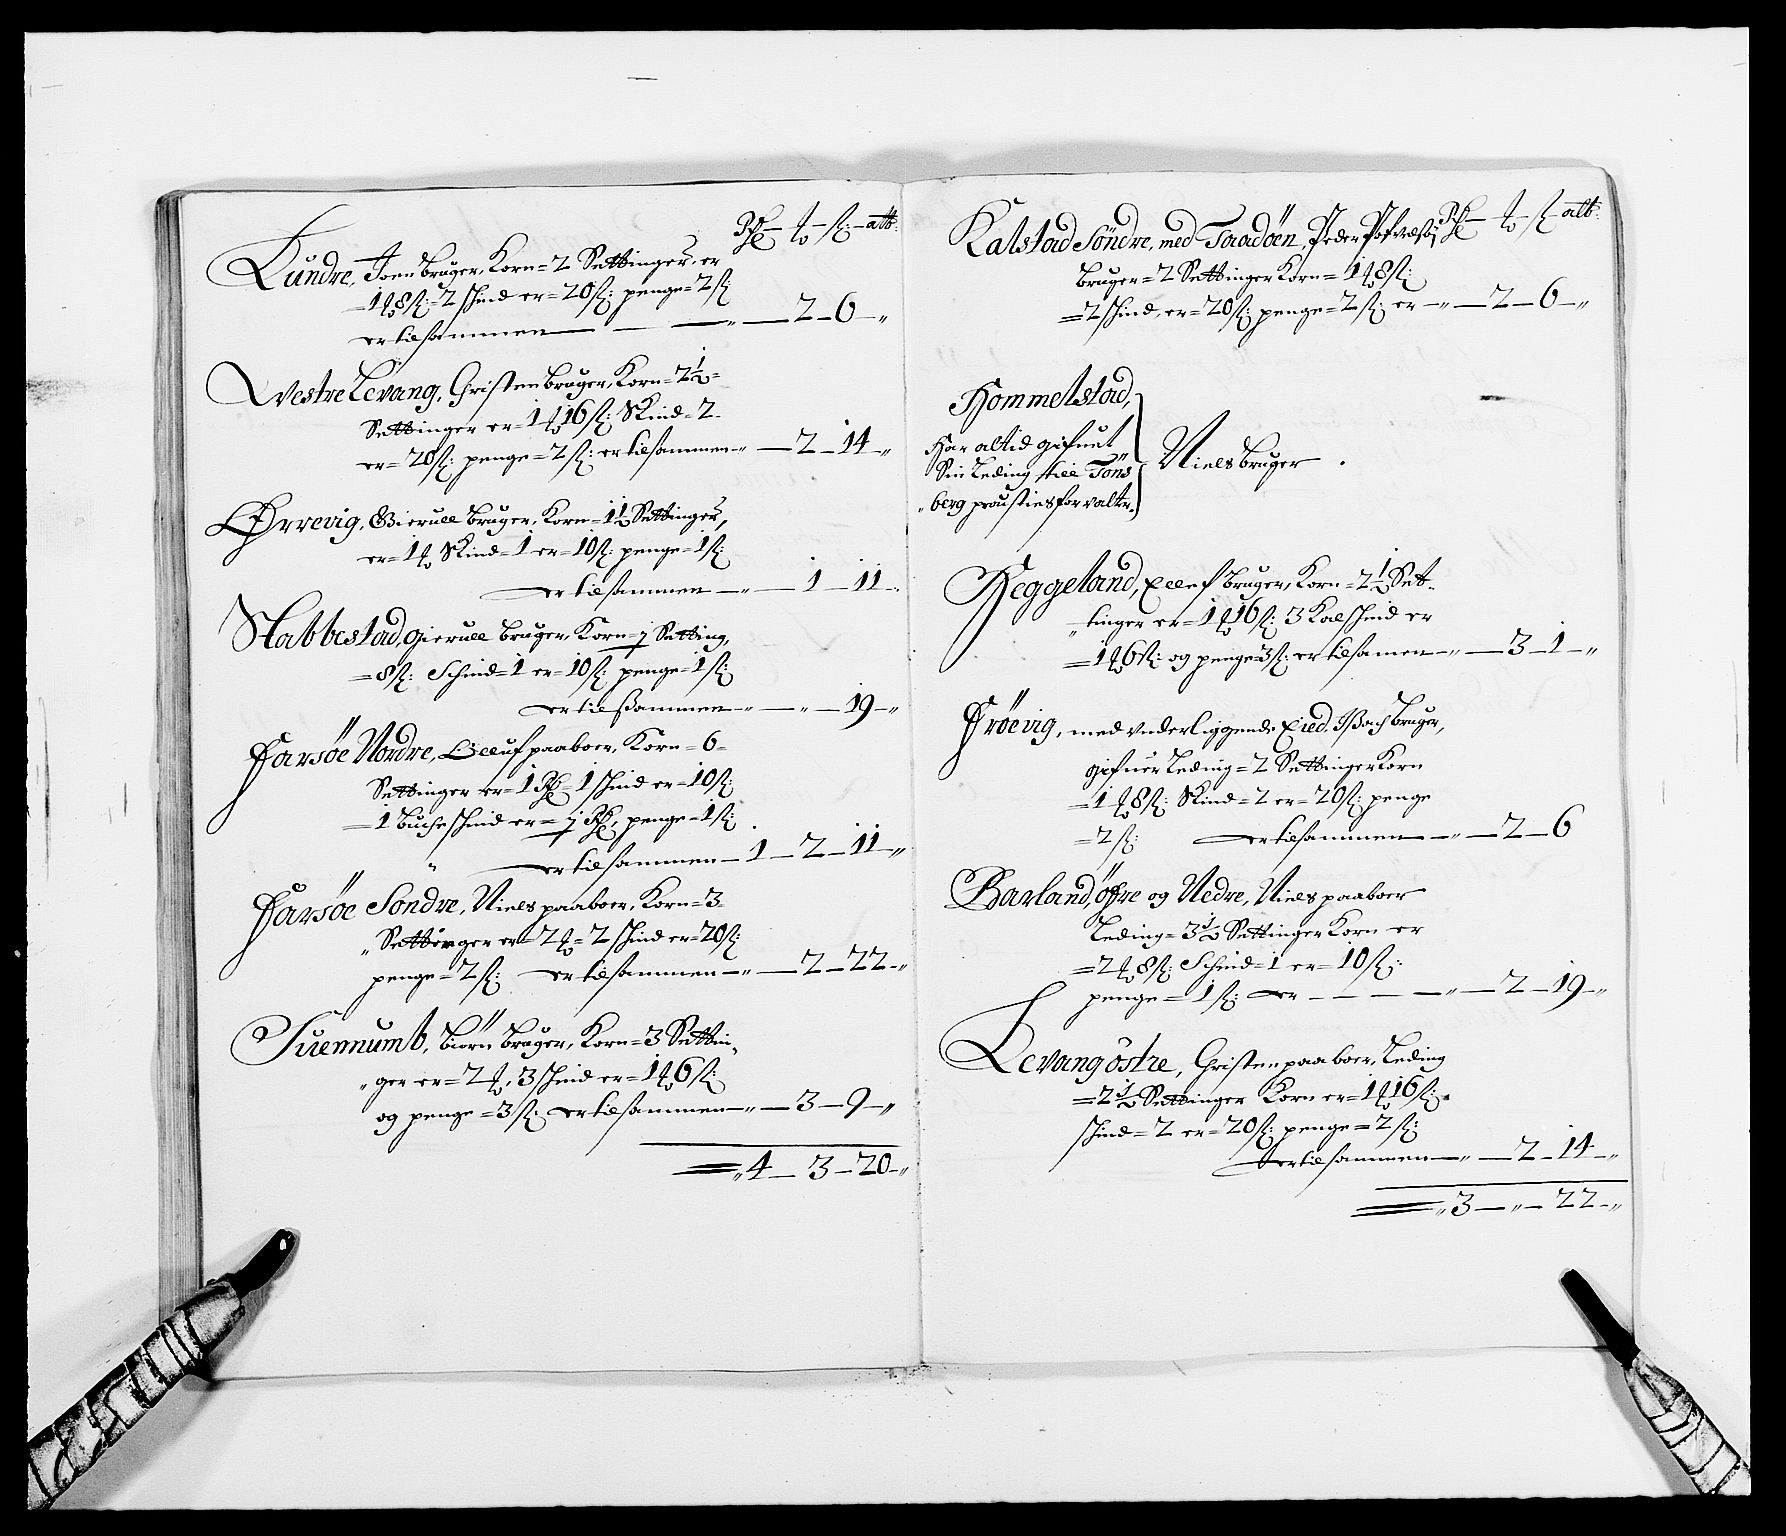 Rdr – ort – ß: – alb:
Lundre, Joen Bruger, Korn = 2 Settinger, er
= 1 ort 8 ß: = 2 skind er = 20 ß: penge = 2 ß:
er tilsammen — — — „ — 2 — 6 — „
Westre Levang, Christen bruger, Korn = 2½ =
Settinger er = 1 ort 16 ß: Skind = 2
er = 20 ß: penge = 2 ß: er tilsammen — „ — 2 — 14 — „
Ørrevig, Gierull Bruger, Korn = 1½ Settinger,
er = 1 ort Skind = 1 er = 10 ß: penge = 1 ß:
er tilsammen — „ — 1 — 11 — „
Nabbestad, Gierull bruger, Korn = 1 Setting,
= 8 ß: Schind = 1 er = 10 ß: penge = 1 ß:
er tilsammen — „ — „ — 19 — „
Farsöe Nordre, Olluf paaboer, Korn = 6 =
Settinger er = 1 Rdr = 1 skind er = 10 ß:
= 1 Buche skind er = ½ Rdr, penge = 1 ß:
„ er tilsammen — 1 — 2 — 11 — „
Farsöe Sondre, Niels paaboer, Korn = 3
„ Settinger er = 2 ort = 2 skind er = 20 ß:
penge = 2 ß: er tilsammen — „ — 2 — 22 — „
Tuennumb, biörn bruger, Korn = 3 Settin„
„ ger er = 2 ort, 3 skind er = 1 ort 6 ß:
og penge = 3 ß: er tilsammen — „ — 3 — 9 — „
= „ 4 — 3 — 20 — „
Rdr – ort – ß – alb:
Kalstad Söndre, med Taadöen, Peder
Bruger = 2 Settinger Korn = 1 ort 8 ß:
= 2 skind, er = 20 ß: penge = 2 ß: er — „ — 2 — 6 — „
Hommelstad,
Har altid gifuet
Sin Leding till Tons
„ berg proustiesforvaltr.
Niels bruger .
Heggeland, Ellef bruger, Korn = 2½ Set„
„ tinger er = 1 ort 16 ß: 3 Kalskind er
= 1 ort 6 ß: og penge 3 ß: er tilsamen — „ — 3 — 1 — „
Frövig, med underliggende Eied. Isach bruger,
gifuer Leding = 2 Settinger Korn
= 1 ort 8 ß: Skind = 2 er = 20 ß: penge
= 2 ß: er tilsammen — „ — 2 — 6
Barland, öfre og Nedre, Niels paaboer
Leding = 3½ Settinger Korn er
= 2 ort 8 ß: Schind = 1 er = 10 ß:
penge = 1 ß: er — — — — „ — 2 — 19 — „
Levang östre, Christen paaboer, Leding
= 2½ Settinger Korn er = 1 ort 16 ß:
skind = 2 er = 20 ß: penge = 2 ß:
er tilsammen — „ — 2 — 14 — „
= „ 3 — „ — 22 — „